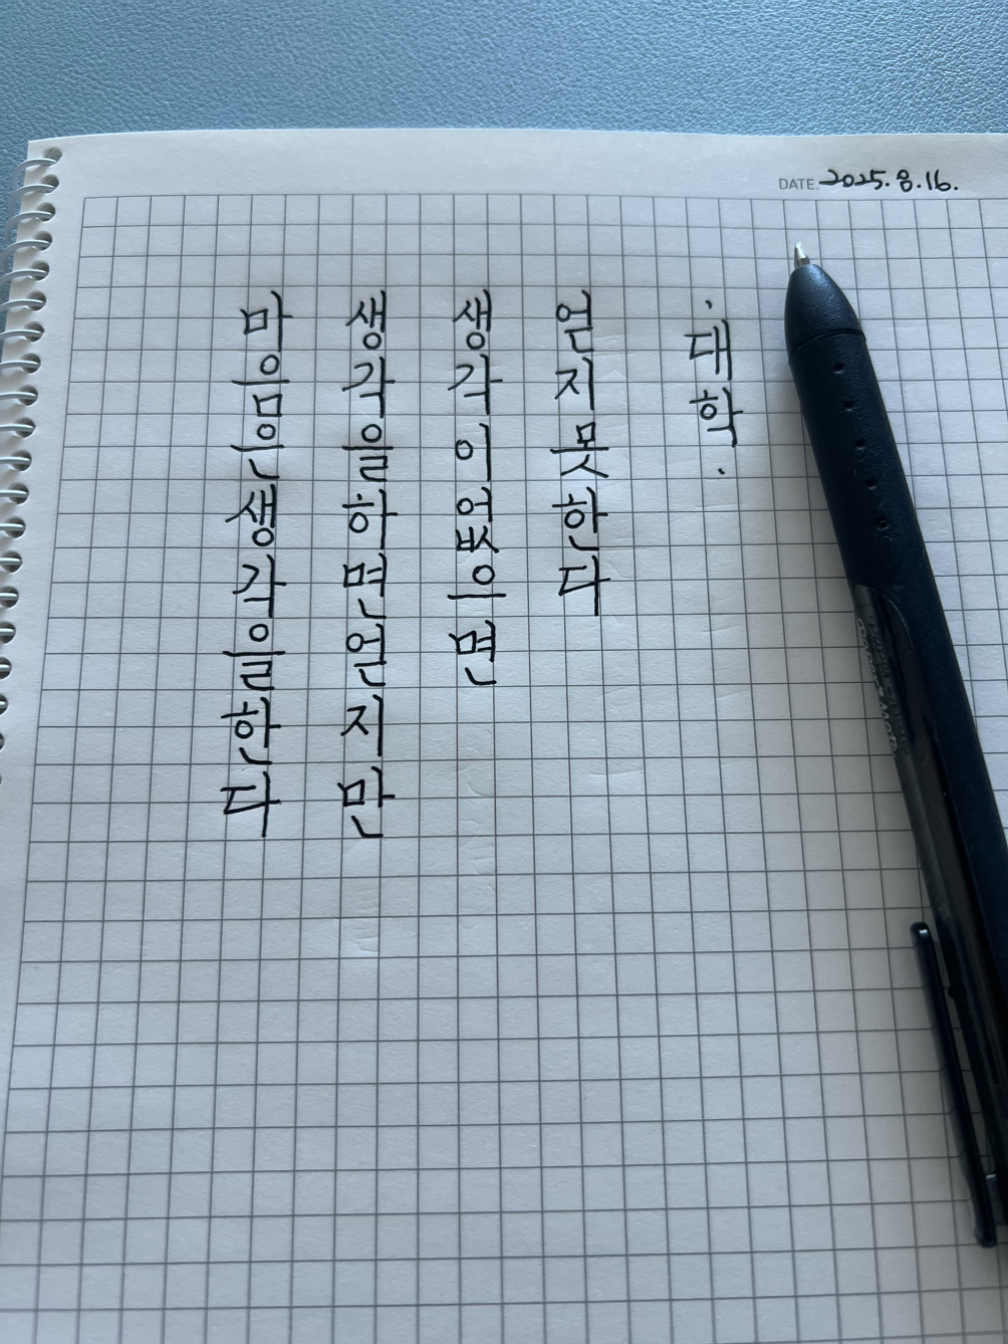 DATE. 2025. 8. 16.
마음은생각을한다
생각을하면얻지만
생각이없으면
얻지못한다
·대학·